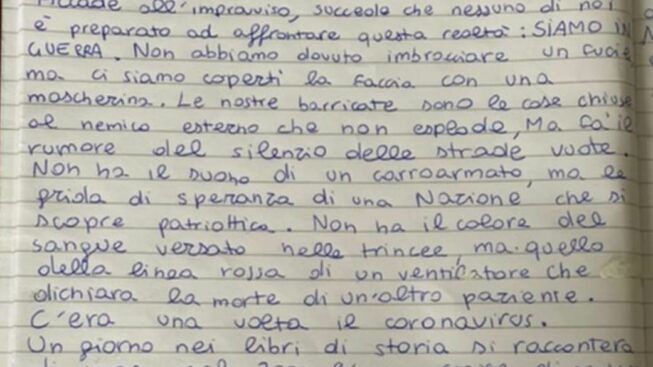 Accade all'improvviso, succede che nessuno di noi
è preparato ad affrontare questa realtà: SIAMO IN
GUERRA. Non abbiamo dovuto imbracciare un fucile,
ma ci siamo coperti la faccia con una
mascherina. Le nostre barricate sono le case chiuse
al nemico esterno che non esplode, Ma fa il
rumore del silenzio delle strade vuote.
Non ha il suono di un carroarmato, ma le
grida di speranza di una Nazione che si
scopre patriottica. Non ha il colore del
sangue versato nelle trincee, ma quello
della linea rossa di un ventilatore che
dichiara la morte di un'altro paziente.
C'era una volta il coronavirus.
Un giorno nei libri di storia si racconterà